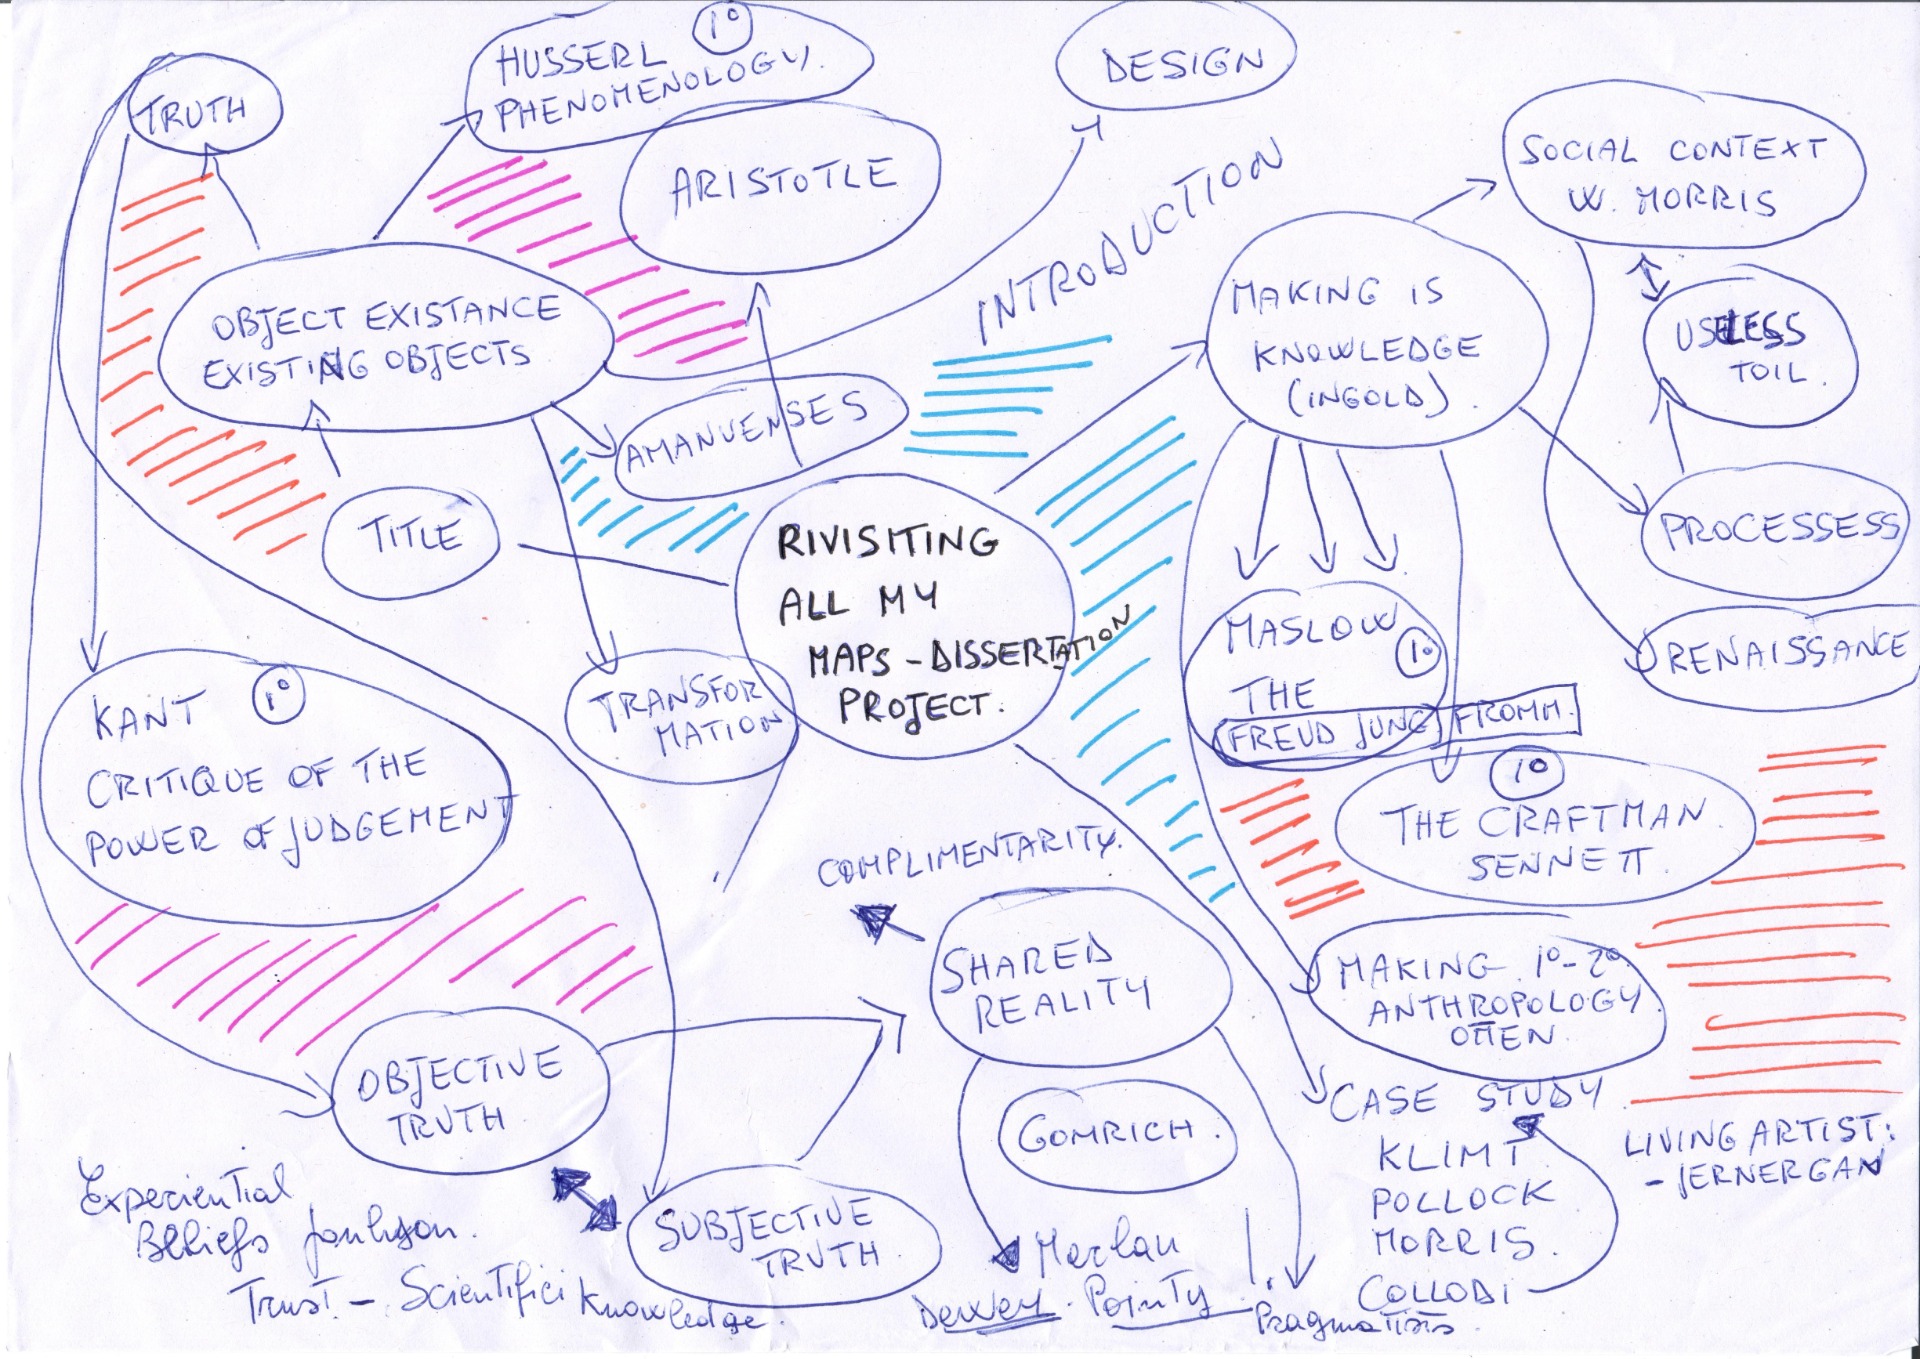 1º
HUSSERL
PHENOMENOLOGY.
DESIGN
TRUTH
ARISTOTLE
SOCIAL CONTEXT
W. MORRIS
INTRODUCTION
OBJECT EXISTANCE
EXISTING OBJECTS
MAKING IS
KNOWLEDGE
(INGOLD).
USELESS
TOIL.
AMANUENSES
TITLE
RIVISITING
ALL MY
MAPS - DISSERTATION
PROJECT.
PROCESSESS
MASLOW
1º
THE
FREUD JUNG FROMM.
RENAISSANCE
KANT 1º
CRITIQUE OF THE
POWER OF JUDGEMENT
TRANSFOR
MATION
1º
THE CRAFTMAN.
SENNETT.
COMPLIMENTARITY.
SHARED
REALITY
MAKING 1º-2º.
ANTHROPOLOGY
OTTEN.
OBJECTIVE
TRUTH
GOMRICH.
CASE STUDY
KLIMT
POLLOCK
MORRIS.
COLLODI
LIVING ARTIST:
- JERNERGAN
Experiential
Beliefs
Trust - Scientifici knowledge.
SUBJECTIVE
TRUTH.
Merlau
Dewey. Pointy
Pragmatists